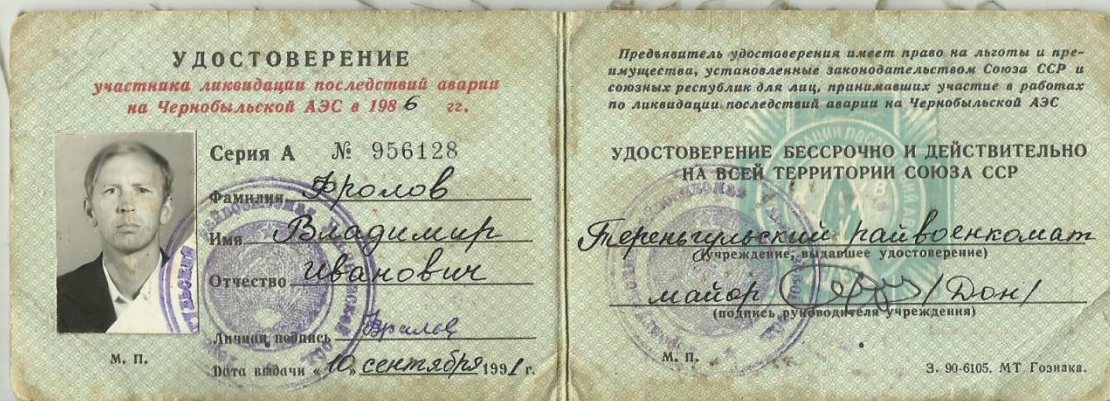 УДОСТОВЕРЕНИЕ
участника ликвидации последствий аварии
на Чернобыльской АЭС в 1986 гг.
Серия А № 956128
Фамилия Фролов
Имя Владимир
Отчество Иванович
Личная подпись Фролов
М. П.
Дата выдачи «10» сентября 1991 г.
Предъявитель удостоверения имеет право на льготы и пре-
имущества, установленные законодательством Союза ССР и
союзных республик для лиц, принимавших участие в работах
по ликвидации последствий аварии на Чернобыльской АЭС
УДОСТОВЕРЕНИЕ БЕССРОЧНО И ДЕЙСТВИТЕЛЬНО
НА ВСЕЙ ТЕРРИТОРИИ СОЮЗА ССР
Тереньгульский райвоенкомат
(учреждение, выдавшее удостоверение)
майор /Дон/
(подпись руководителя учреждения)
М. П.
З. 90-6105. МТ Гознака.